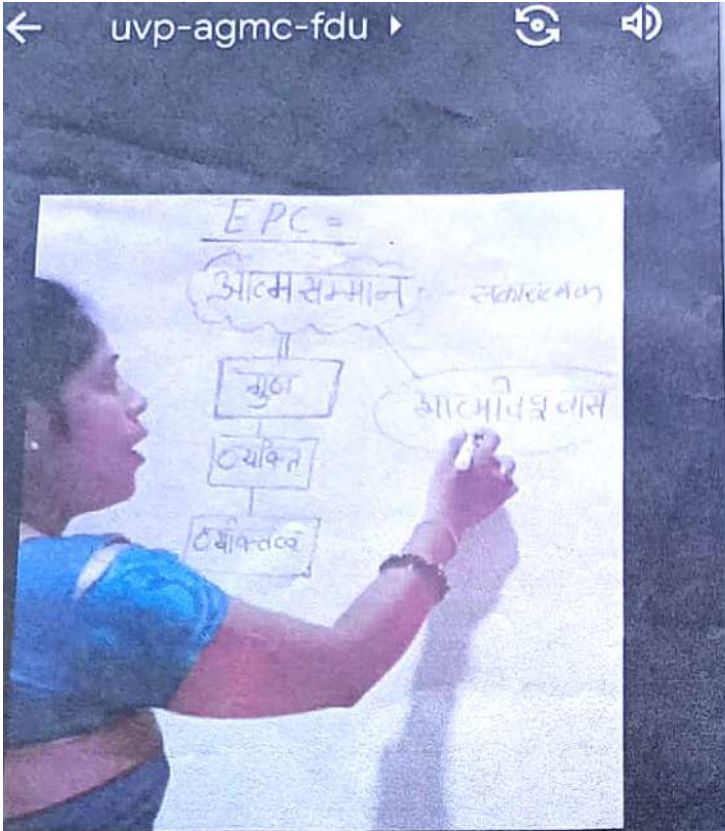 uvp-agmc-fdu
EPC =
आत्मसम्मान
सकारात्मक
गुण
आत्मविश्वास
व्यक्ति
व्यक्तित्व